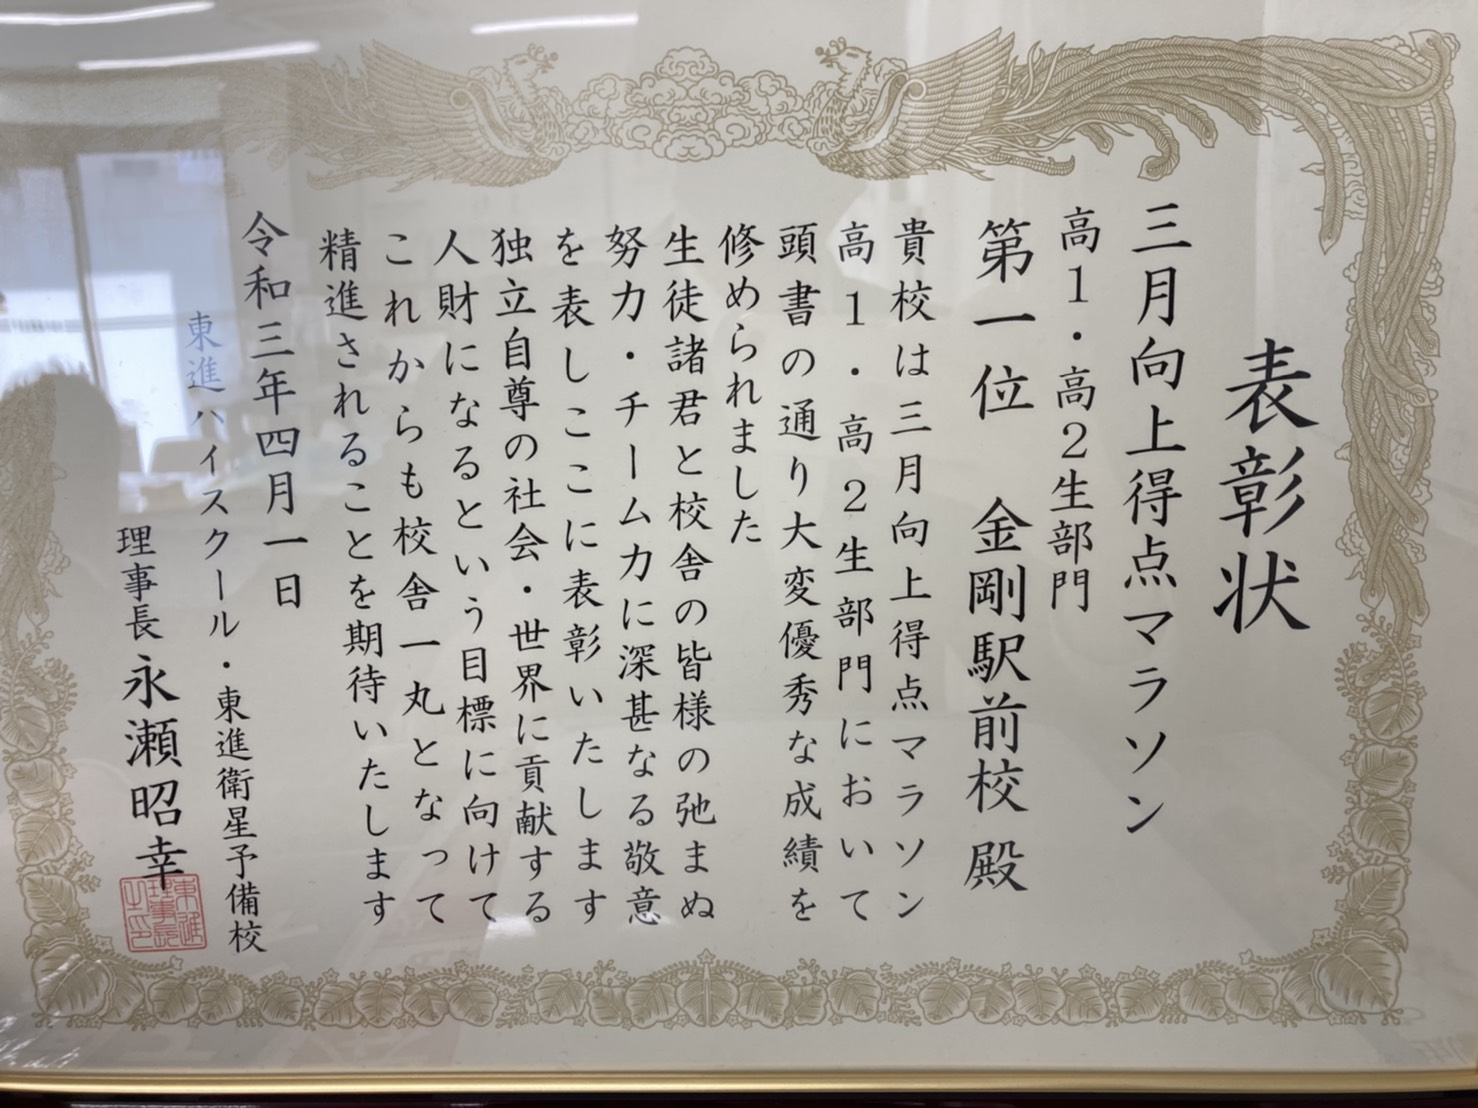 表彰状
三月向上得点マラソン
高1・高2生部門
第一位 金剛駅前校 殿
貴校は三月向上得点マラソン
高1・高2生部門において
頭書の通り大変優秀な成績を
修められました
生徒諸君と校舎の皆様の弛まぬ
努力・チーム力に深甚なる敬意
を表しここに表彰いたします
独立自尊の社会・世界に貢献する
人財になるという目標に向けて
これからも校舎一丸となって
精進されることを期待いたします
令和三年四月一日
東進ハイスクール・東進衛星予備校
理事長 永瀬昭幸
東進
理事長
之印